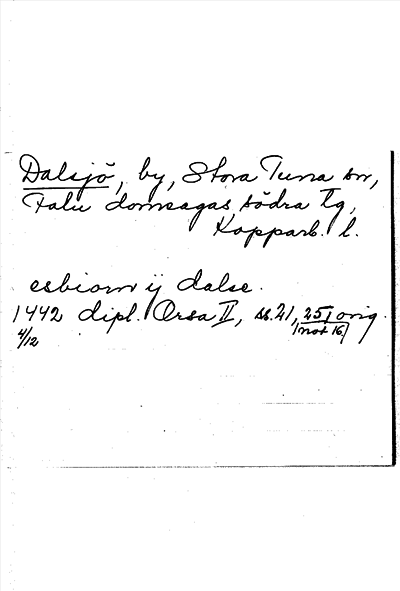 Dalsjö, by, Stora Tuna sn,
Falu domsagas södra tg,
Kopparb. l.
esbiorn ij dalse.
1442 dipl. Orsa II, ss. 21, 25, orig.
4/12 not 16